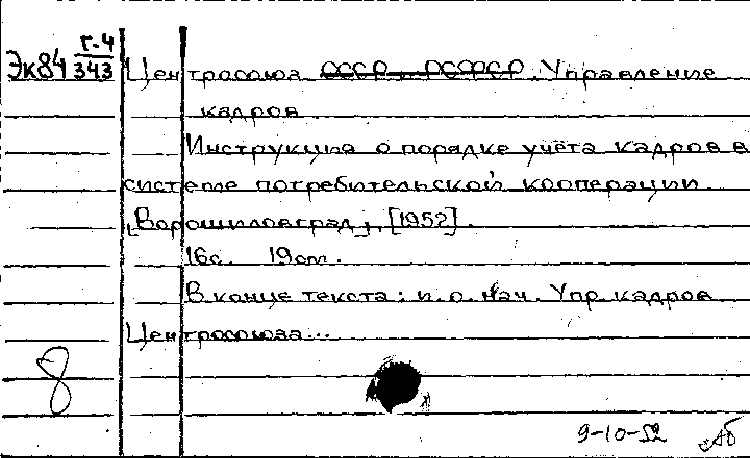 Эк84 Г-4/343
Центросоюз СССР и РСФСР. Управление
кадров
Инструкция о порядке учёта кадров в
системе потребительской кооперации.
[Ворошиловград], [1952].
16с. 19 cm.
В конце текста: и.о. нач. Упр. кадров
Центросоюза...
8
9-10-52